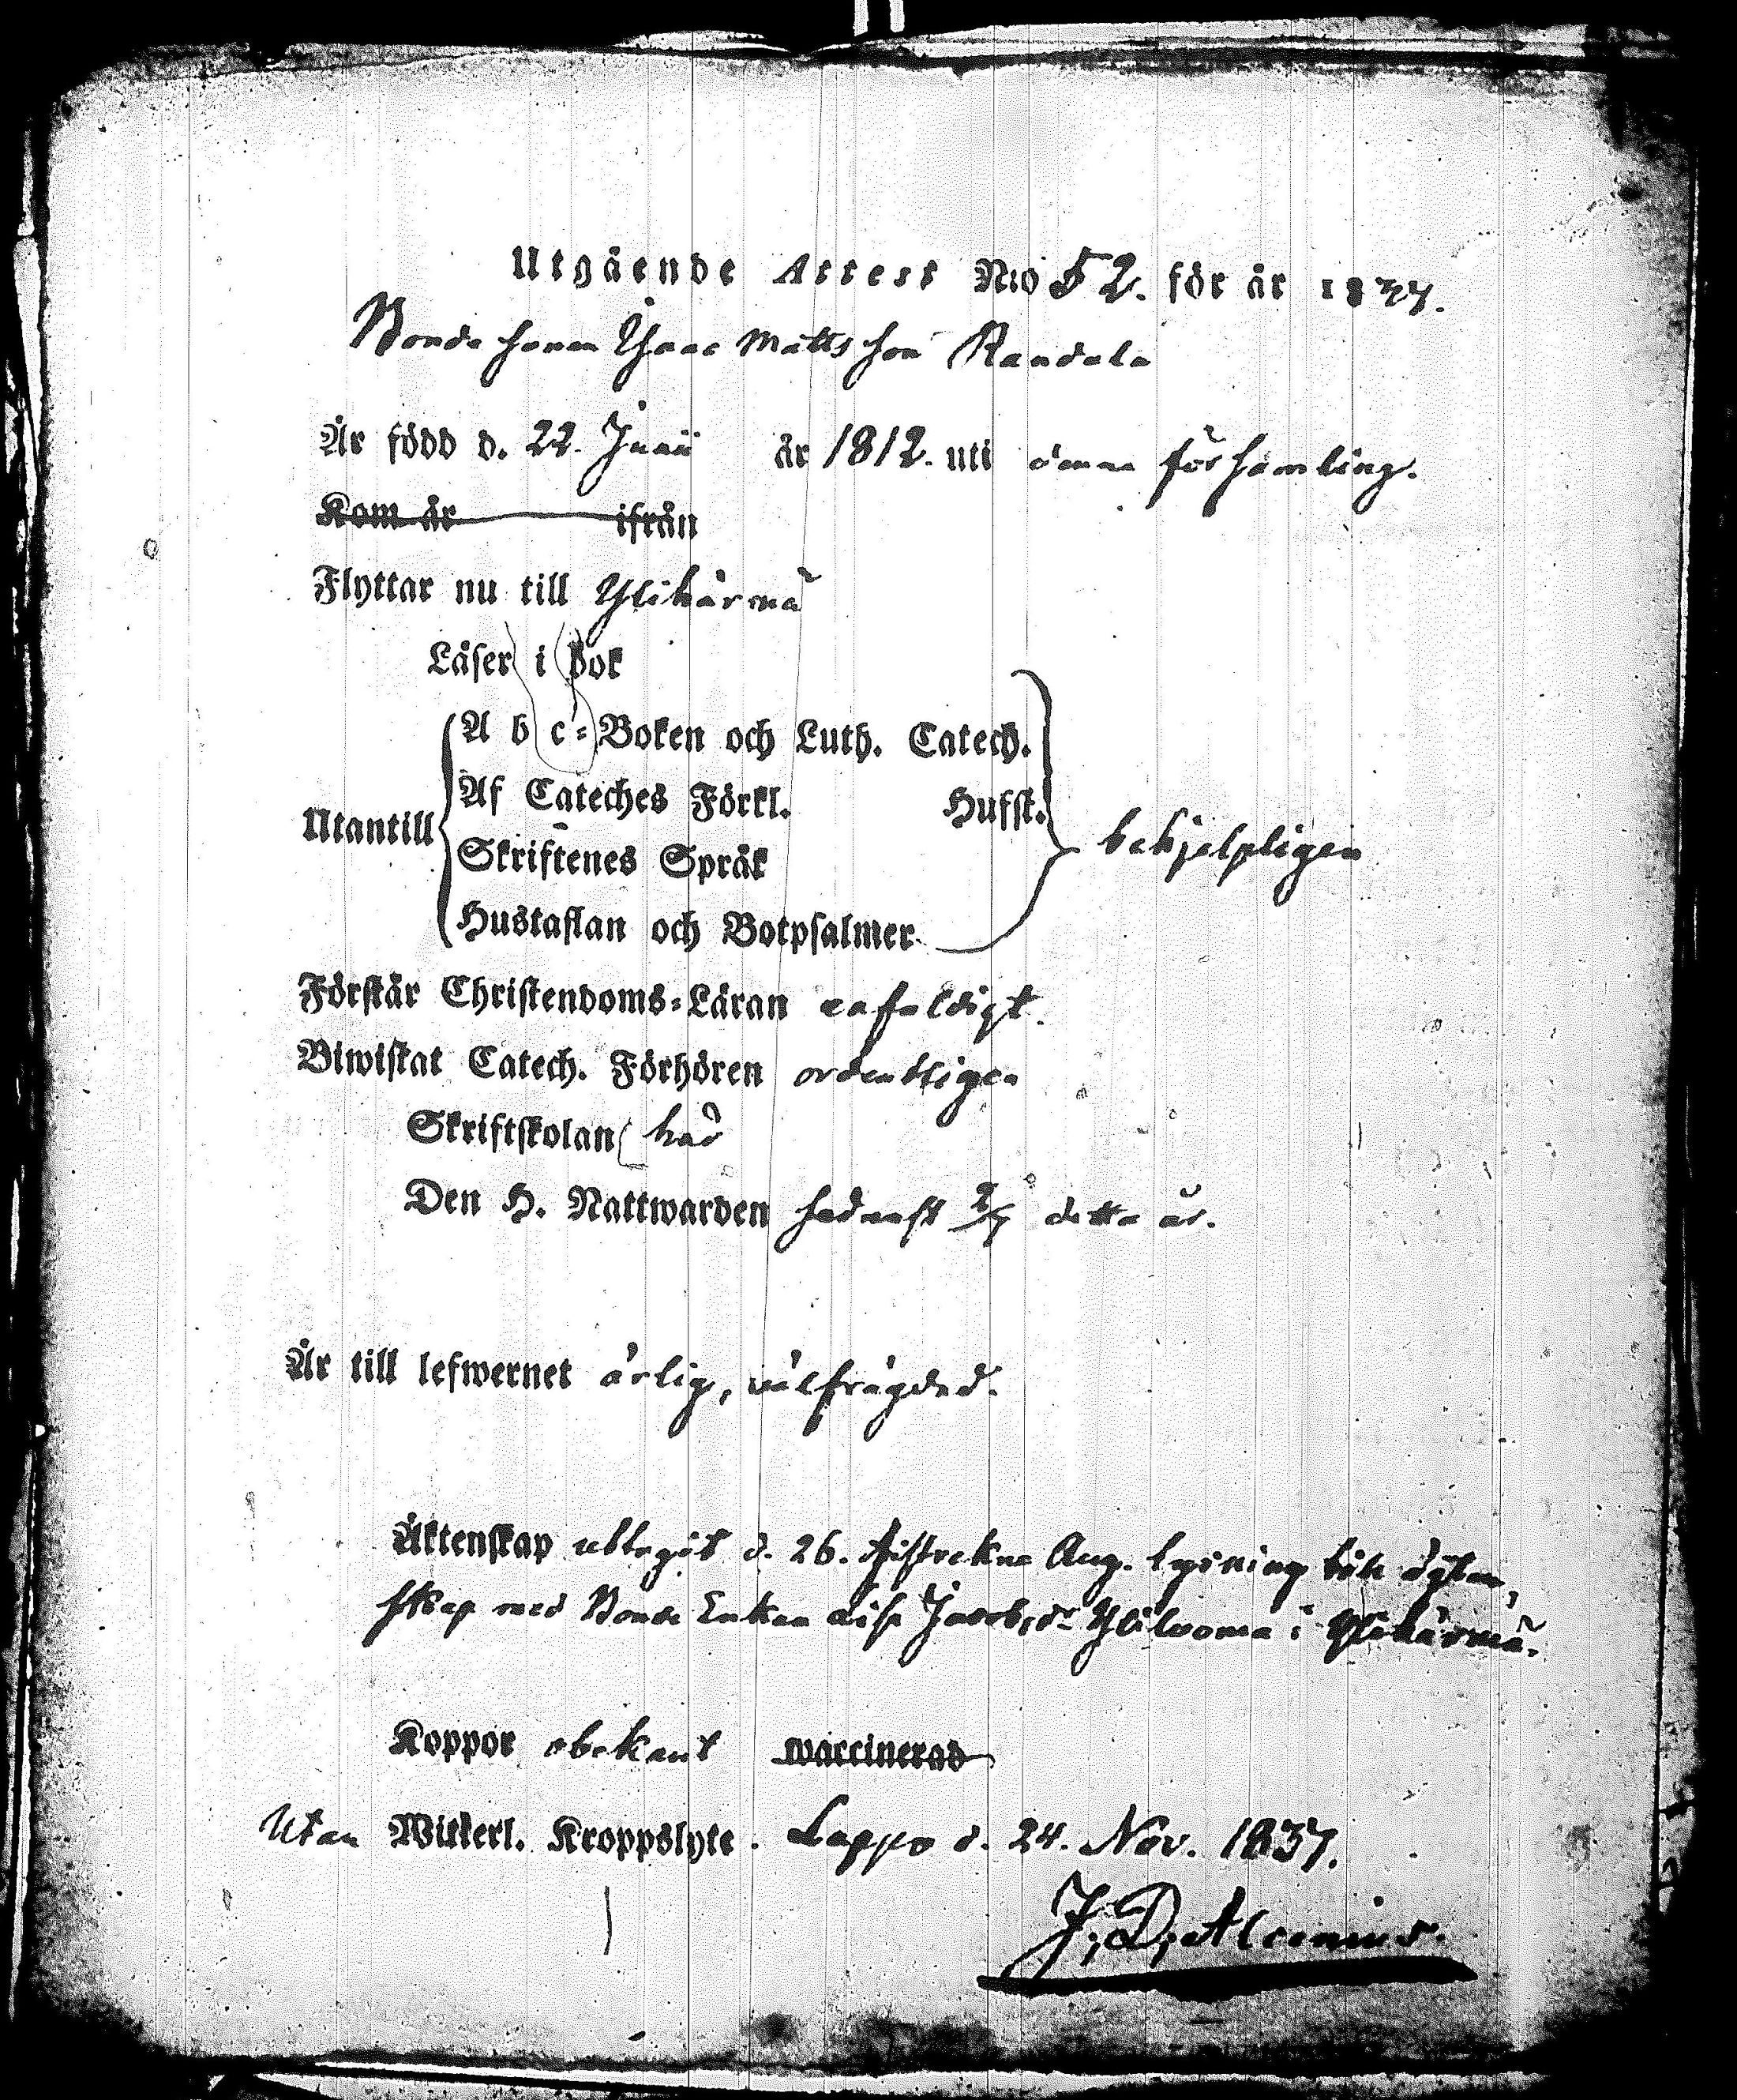 Utgående Attest N:o 52. för år 1837.
Bonde sonen Isaac Mattsson Kandala
Är född d. 22. Junii år 1812. uti denna församling.
Kom år ifrån
Flyttar nu till Ylihärmä
Läser i bok
A b c-Boken och Luth. Catech.
Af Cateches Förkl. Husst.
Utantill behjelpligen
Skriftenes Språk
Hustaflan och Botpsalmer
Förstår Christendoms-Läran enfaldigt.
Biwistat Catech. Förhören ordentligen
Skriftskolan här
Den H. Nattwarden sednast detta år.
Är till lefwernet ärlig, välfrägdad.
Äktenskap uttagit d. 26. sistvekne Aug. lysning till ägten,
skap med Bonde Enkan Lisa Jacobsdr Yliluoma i Ylihärmä.
Koppor obekant waccinerad
Utan Witterl. Kroppslyte. Lappo d. 24. Nov. 1837.
J; D; Alcenius.